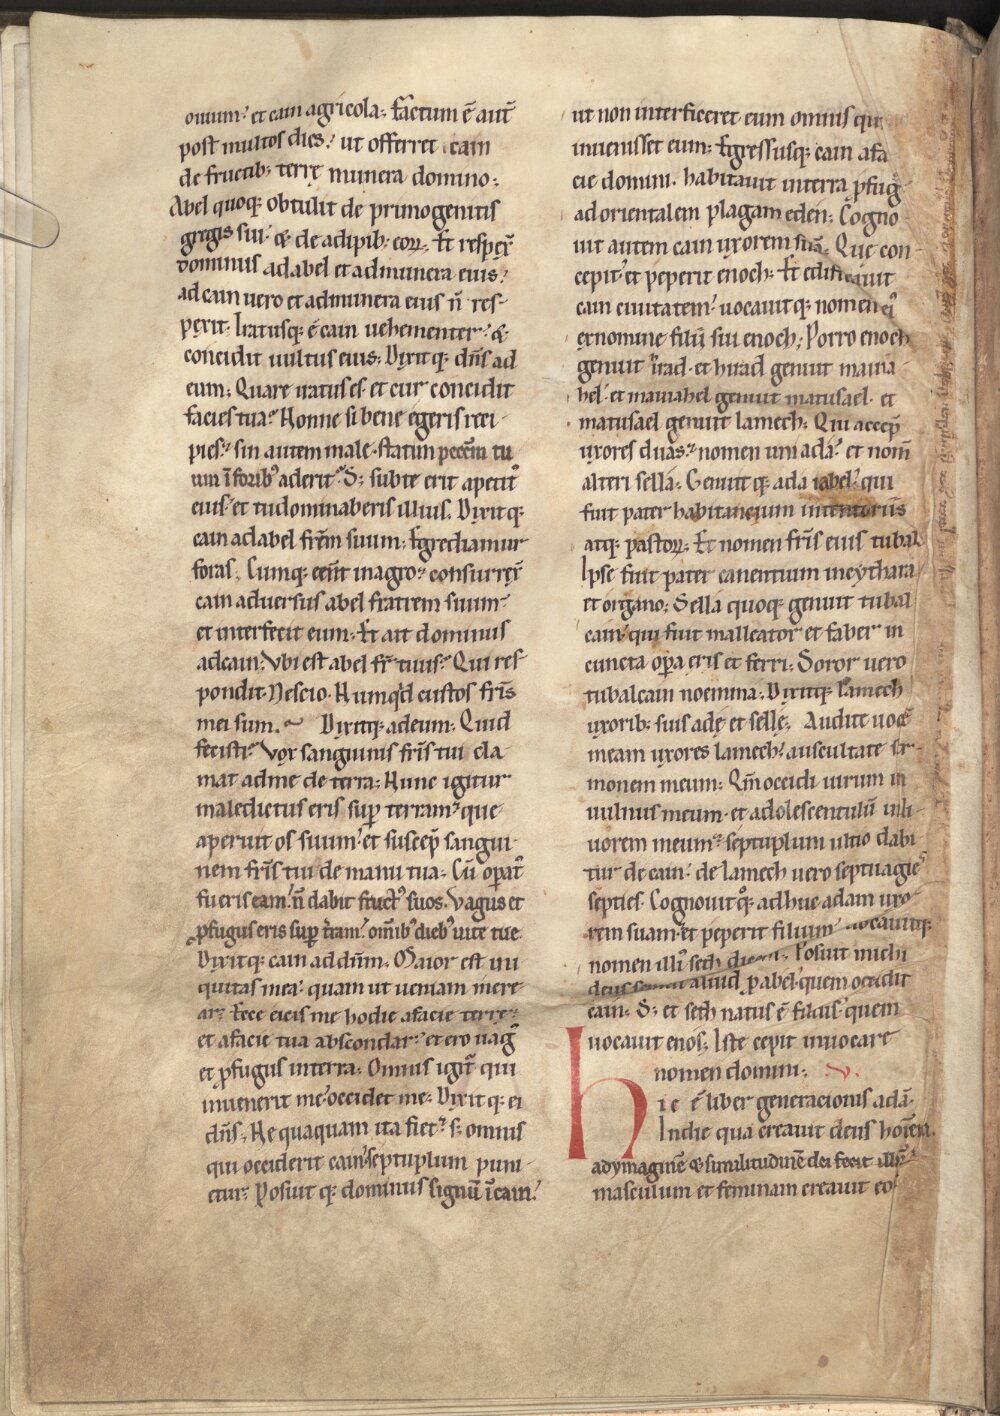 ouium: et cain agricola. Factum ē aut̄
post multos dies: ut offerret cain
de fructib; terrę munera domino.
Abel quoq; obtulit de primogenitis
gregis sui & de adipib; eoꝝ. Et respex̄
dominus ad abel et ad munera eius:
ad cain uero et ad munera eius n̄ res-
pexit. Iratusq; ē cain uehementer: &
concidit uultus eius. Dixitq; dn̄s ad
eum. Quare iratus es et cur concidit
facies tua? Nonne si bene egeris reci-
pies? sin autem male statim peccm̄ tu-
um ī forib; aderit? S; subte erit apetit᷒
eius et tu dominaberis illius. Dixitq;
cain ad abel frēm suum. Egrediamur
foras. Cumq; eēnt in agro: consurrex̄
cain aduersus abel fratrem suum
et interfecit eum. Et ait dominus
ad cain. Vbi est abel fr̄ tuus? Qui res-
pondit. Nescio. Numqd custos fr̄is
mei sum. Dixitq; ad eum. Quid
fecisti? Vox sanguinis fr̄is tui cla-
mat ad me de terra. Nunc igitur
maledictus eris sup̄ terram: que
aperuit os suum et suscep̄ sangui-
nem fr̄is tui de manu tua. Cū opat᷒
fueris eam: n̄ dabit fruct᷒ suos. Vagus et
pfugus eris sup̄ tr̄am om̄ib᷒ dieb᷒ uite tue.
Dixitq; cain ad dn̄m. Maior est ini-
quitas mea: quam ut ueniam mere-
ar. Ecce eicis me hodie a facie terre:
et a facie tua abscondar: et ero uag᷒
et pfugus in terra. Omnis igit᷒ qui
inuenerit me occidet me. Dixitq; ei
dn̄s. Nequaquam ita fiet: s; omnis
qui occiderit cain septuplum puni-
etur. Posuitq; dominus signū ī cain:
ut non interficeret eum omnis qui
inuenisset eum. Egressusq; cain a fa-
cie domini. habitauit in terra pfug᷒
ad orientalem plagam eden. Cogno-
uit autem cain uxorem suā. Que con-
cepit et peperit enoch. Et edificauit
cain ciuitatem: uocauitq; nomen ei᷒
ex nomine filii sui enoch. Porro enoch
genuit irad et hirad genuit mauia-
hel et mauiahel genuit matusael et
matusael genuit lamech. Qui accep̄
uxores duas: nomen uni ada: et nom̄
alteri sella. Genuitq; ada iabel: qui
fuit pater habitancium in tentoriis
atq; pastoꝝ. Et nomen fr̄is eius tubal
Ipse fuit pater canentium in cythara
et organo. Sella quoq; genuit tubal
cain qui fuit malleator et faber in
cuncta opa eris et ferri. Soror uero
tubalcain noemma. Dixitq; lamech
uxorib; suis ade et selle. Audite uocē
meam uxores lamech: auscultate ser-
monem meum. Qm̄ occidi uirum in
uulnus meum et adolescentulū in li-
uorem meum: septuplum ultio dabi-
tur de cain: de lamech uero septuagies
septies. Cognouit q; adhuc adam uxo-
rem suam et peperit filium uocauitq;
nomen illi᷒ seth dicens. Posuit michi
deus semen aliud p abel quem occidit
cain. S; et seth natus ē filius quem
uocauit enos. Iste cepit inuocare
nomen domini. V.
hic ē liber generacionis adā.
In die qua creauit deus hoīem
ad ymaginē & similitudinē dei fecit illū
masculum et feminam creauit eos